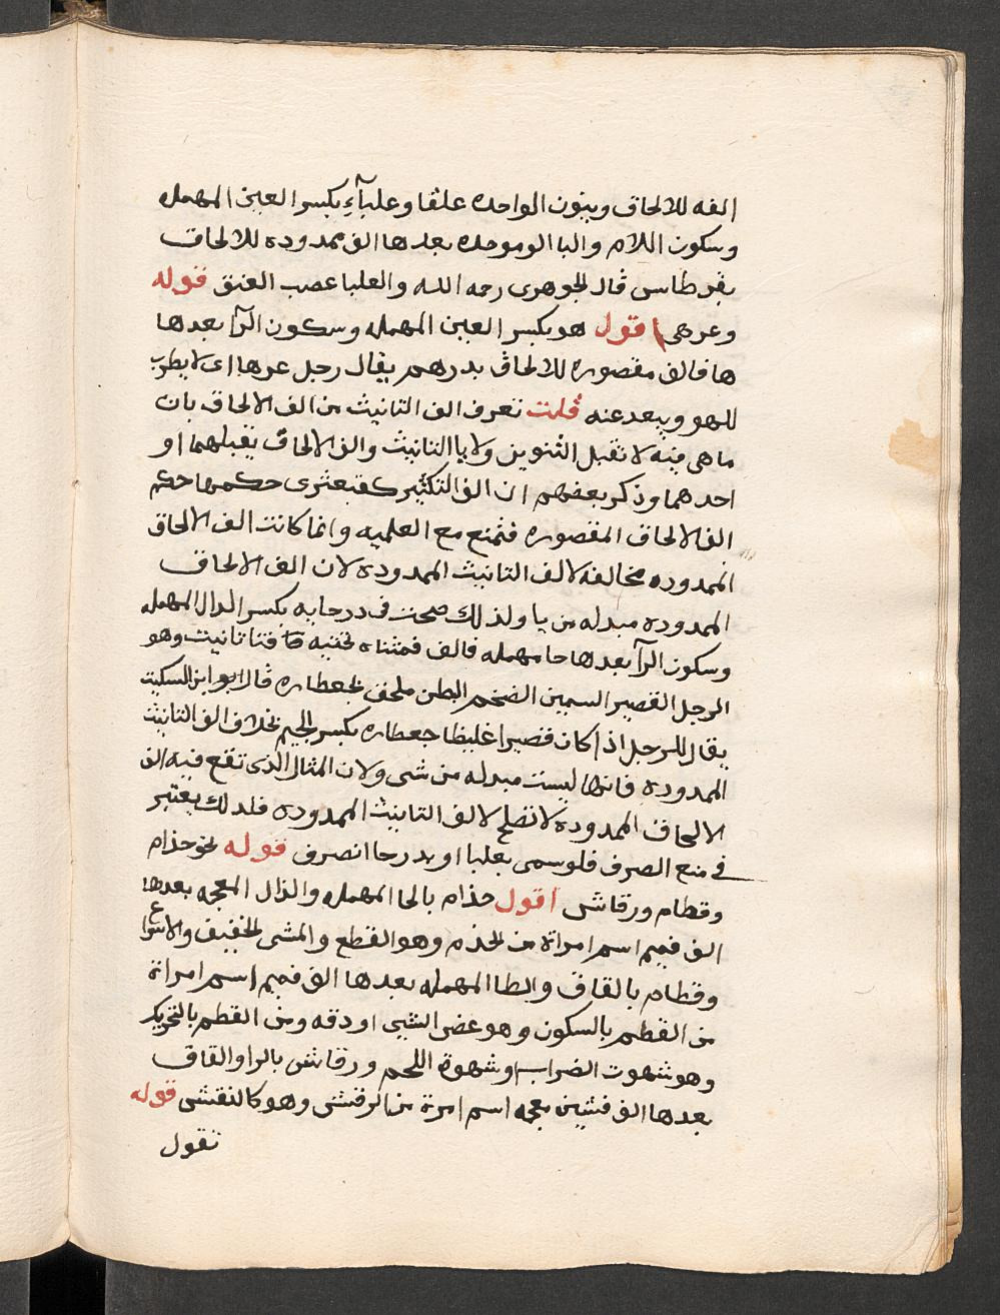 الفه للالحاق وبينون الواحده علقا وعلبآءِ بكسر العين المهمله
وسكون اللام والبا الوموحده بعدها الف ممدوده للالحاق
بقرطاس قال الجوهرى رحمه الله والعلبا عصب العنق قوله
وعرهى اقول هو بكسر العين المهمله وسكون الرآ بعدها
ها فالف مقصوره للالحاق بدرهم يقال رجل عرها اى لا يطرب
للهو ويبعد عنه قلت تعرف الف التانيث من الف الالحاق بان
ما هى فيه لا تقبل التنوين ولا يا التانيث والف الالحاق يقبلهما او
احدهما وذكر بعضهم ان الف التكثير كقبعثرى حكمها حكم
الف الالحاق المقصوره فتمنع مع العلميه وانما كانت الف الالحاق
الممدوده مخالفه لالف التانيث الممدوده لان الف الالحاق
الممدوده مبدله من يا ولذلك صحت فى درحايه بكسر الدال المهمله
وسكون الرآ بعدها حا مهمله فالف فمثناه تحتيه فتا تانيث وهو
الرجل القصير السمين الضخم البطن ملحق بجعطاره قال ابو ابن السكيت
يقال للرجل اذا كان قصيرا غليظا جعطاره بكسر الجيم بخلاف الف التانيث
الممدوده فانها ليست مبدله من شى ولان المثال الذى تقع فيه الف
الالحاق الممدوده لا تصلح لالف التانيث الممدوده فلذلك يعتبر
فى منع الصرف فلو سمى بعلبا او بدرحا انصرف قوله نحو حذام
وقطام ورقاش اقول حذام بالحا المهمله والذال المعجمه بعدها
الف فميم اسم امراة من الحذم وهو القطع والمشى الخفيف والاسراع
وقطام بالقاف والطا المهمله بعدها الف فميم اسم امراة
من القطم بالسكون وهو عض الشى او دقه ومن القطم بالتحريك
وهو شهوت الضراب او شهوة اللحم ورقاش بالرا والقاف
بعدها الف فشين معجمه اسم امرة من الرقش وهو كالنقش قوله
تقول